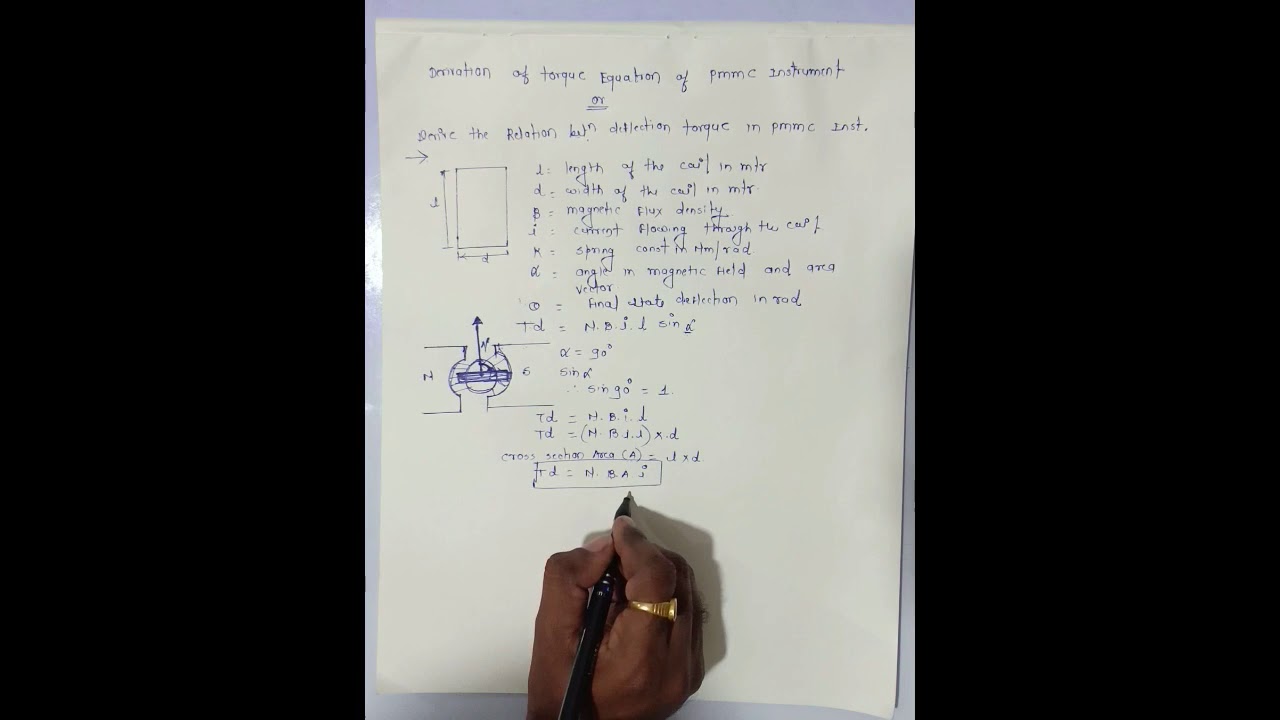 Derivation of torque Equation of pmmc Instrument
or
Derive the Relation betn deflection torque in pmmc Inst.
→
l = length of the coil in mtr
d = width of the coil in mtr.
B = magnetic flux density.
i = current flowing through the coil
K = spring const in Nm/rad
α = angle in magnetic field and area
vector
θ = final state deflection in rad
l
d
N
S
Td = N.B.i.l sin α
α = 90°
sin α
∴ sin 90° = 1.
Td = N.B.i.l
Td = (N.B i.l) × d
cross section Area (A) = l × d
Td = N. B A i